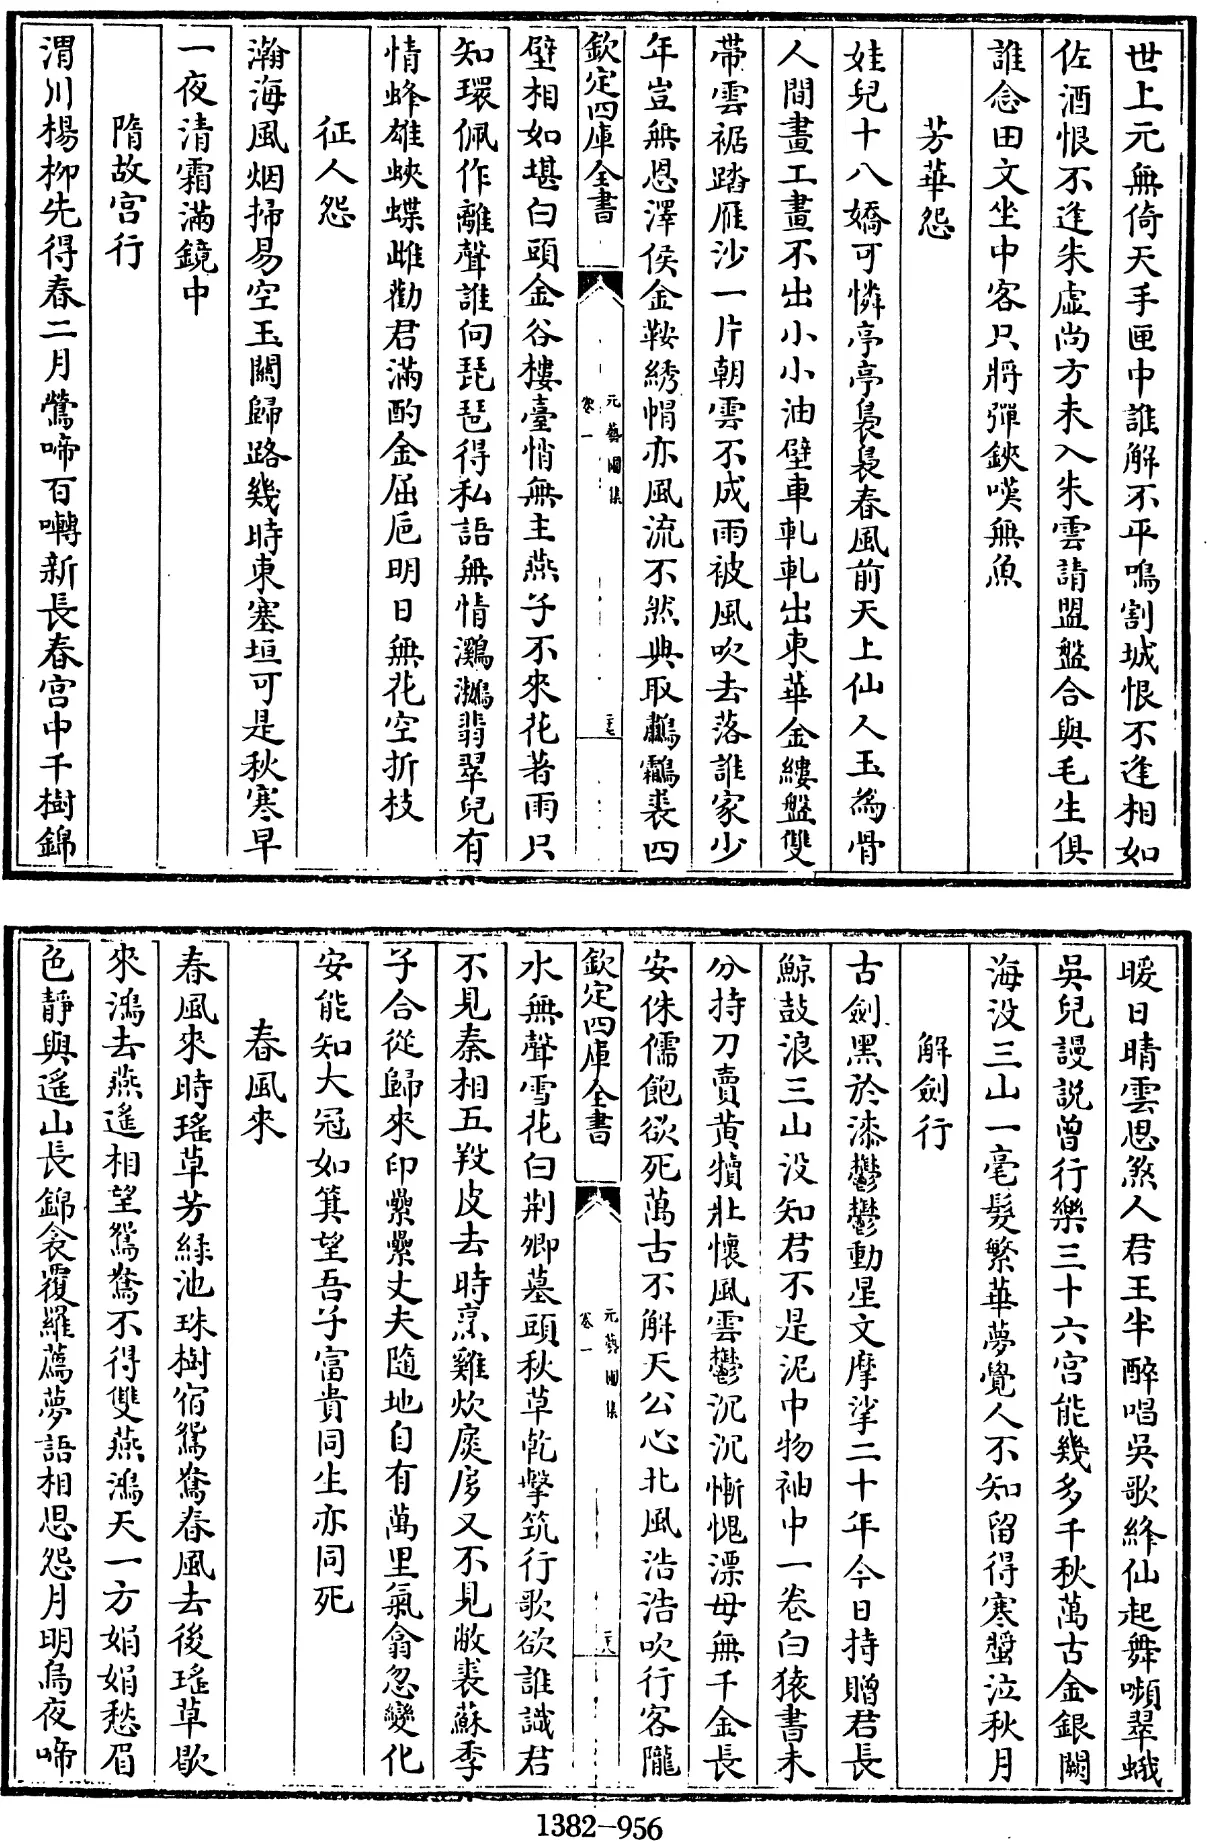 世上元無倚天手匣中誰解不平鳴割城恨不逢相如
佐酒恨不逢朱虛尚方未入朱雲請盟盤合與毛生俱
誰念田文坐中客只將彈鋏嘆無魚
芳華怨
娃兒十八嬌可憐亭亭裊裊春風前天上仙人玉為骨
人間畫工畫不出小小油壁車軋軋出東華金縷盤雙
帶雲裾踏雁沙一片朝雲不成雨被風吹去落誰家少
年豈無恩澤侯金鞍綉帽亦風流不然典取鸕鷀裘四
欽定四庫全書
元藝圃集
卷一
二七
壁相如堪白頭金谷樓臺悄無主燕子不來花著雨只
知環佩作離聲誰向琵琶得私語無情鸂鶒翡翠兒有
情蜂雄蛺蝶雌勸君滿酌金屈卮明日無花空折枝
征人怨
瀚海風烟掃易空玉關歸路幾時東塞垣可是秋寒早
一夜清霜滿鏡中
隋故宮行
渭川楊柳先得春二月鶯啼百囀新長春宮中千樹錦
暖日晴雲思煞人君王半醉唱吳歌絳仙起舞嚬翠蛾
吳兒謾說曾行樂三十六宮能幾多千秋萬古金銀闕
海沒三山一毫髮繁華夢覺人不知留得寒螿泣秋月
解劍行
古劍黑於漆鬱鬱動星文摩挲二十年今日持贈君長
鯨鼓浪三山沒知君不是泥中物袖中一卷白猿書未
分持刀賣黃犢壯懷風雲鬱沉沉慚愧漂母無千金長
安侏儒飽欲死萬古不解天公心北風浩浩吹行客隴
欽定四庫全書
元藝圃集
卷一
二八
水無聲雪花白荆卿墓頭秋草乾擊筑行歌欲誰識君
不見秦相五羖皮去時烹雞炊扊扅又不見敝裘蘇季
子合從歸來印纍纍丈夫隨地自有萬里氣翕忽變化
安能知大冠如箕望吾子富貴同生亦同死
春風來
春風來時瑤草芳綠池珠樹宿鴛鴦春風去後瑤草歇
來鴻去燕遙相望鴛鴦不得雙燕鴻天一方娟娟愁眉
色靜與遙山長錦衾覆羅薦夢語相思怨月明烏夜啼
1382-956